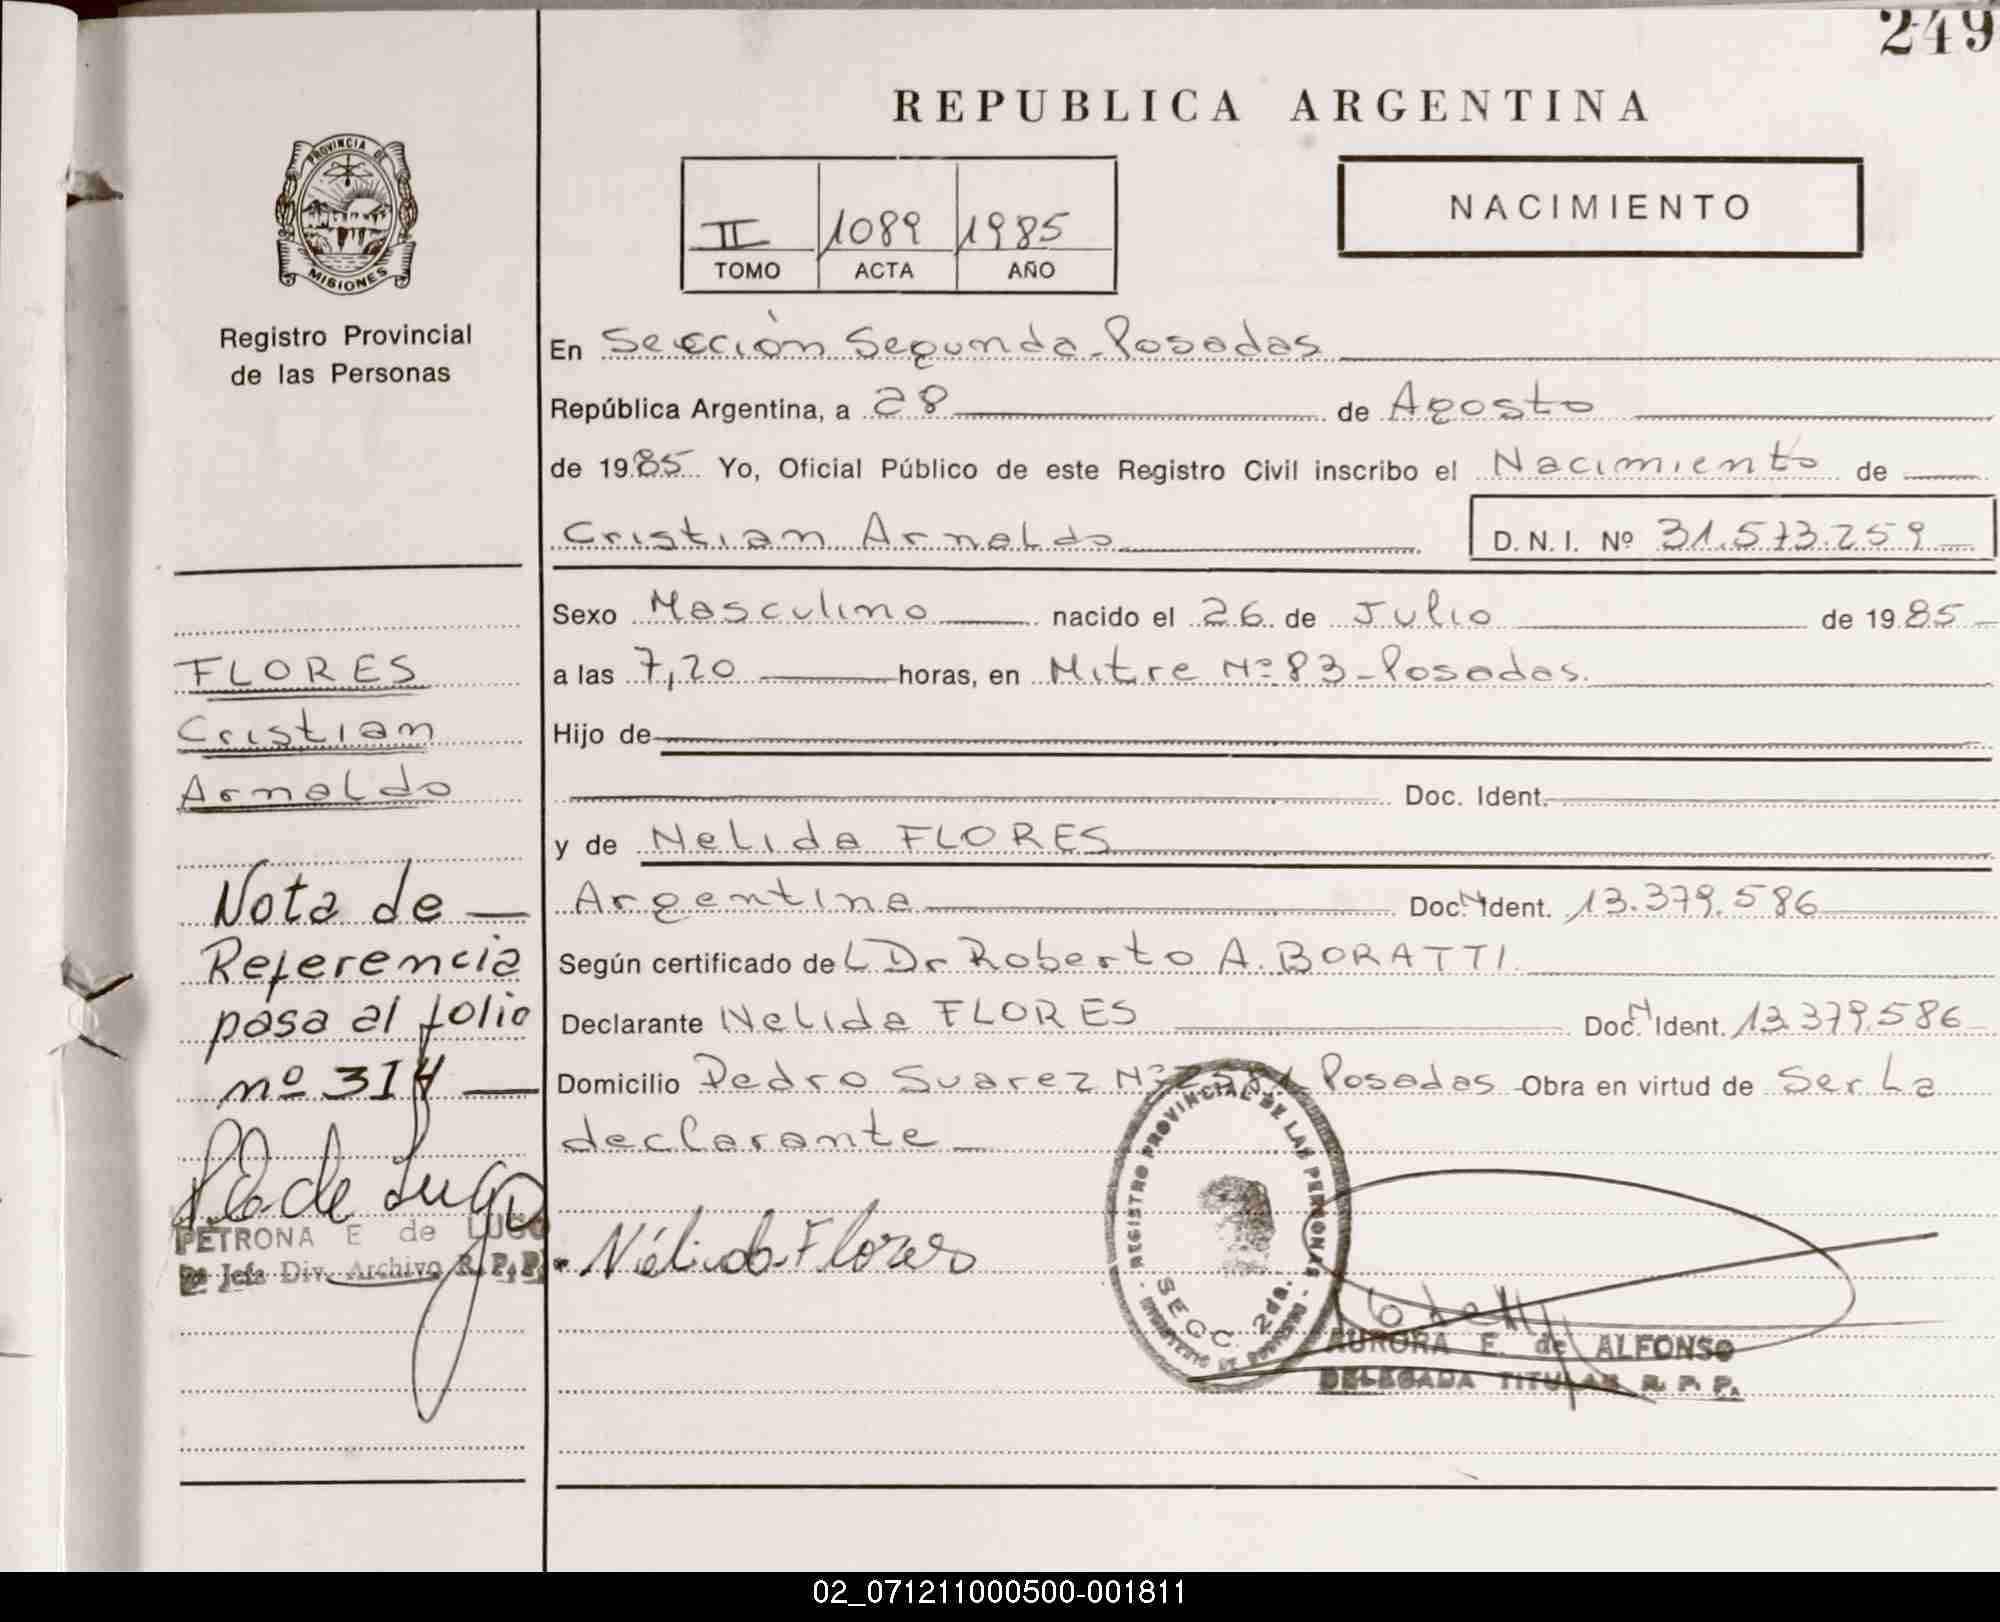 249
REPUBLICA ARGENTINA
PROVINCIA DE
MISIONES
Registro Provincial
de las Personas
II 1089 1985
TOMO ACTA AÑO
NACIMIENTO
En Sección Segunda-Posadas
República Argentina, a 28 de Agosto
de 1985 Yo, Oficial Público de este Registro Civil inscribo el Nacimiento de
Cristian Arnaldo D. N. I. Nº 31.573.259
Sexo Masculino nacido el 26 de Julio de 1985
a las 7,20 horas, en Mitre Nº 83-Posadas.
Hijo de
Doc. Ident.
y de Nelida FLORES
Argentina Doc. N Ident. 13.379.586
Según certificado de L Dr Roberto A. BORATTI
Declarante Nelida FLORES Doc. N Ident. 13.379.586
Domicilio Pedro Suarez Nº Posadas Obra en virtud de Ser La
declarante
FLORES
Cristian
Arnaldo
Nota de
Referencia
pasa al folio
nº 314
PETRONA E de LUGO
Jefa Div. Archivo R. P. P.
Nélida Flores
REGISTRO PROVINCIAL DE LAS PERSONAS
SECC. 2da.
AURORA E. de ALFONSO
DELEGADA TITULAR R. P. P.
02_071211000500-001811